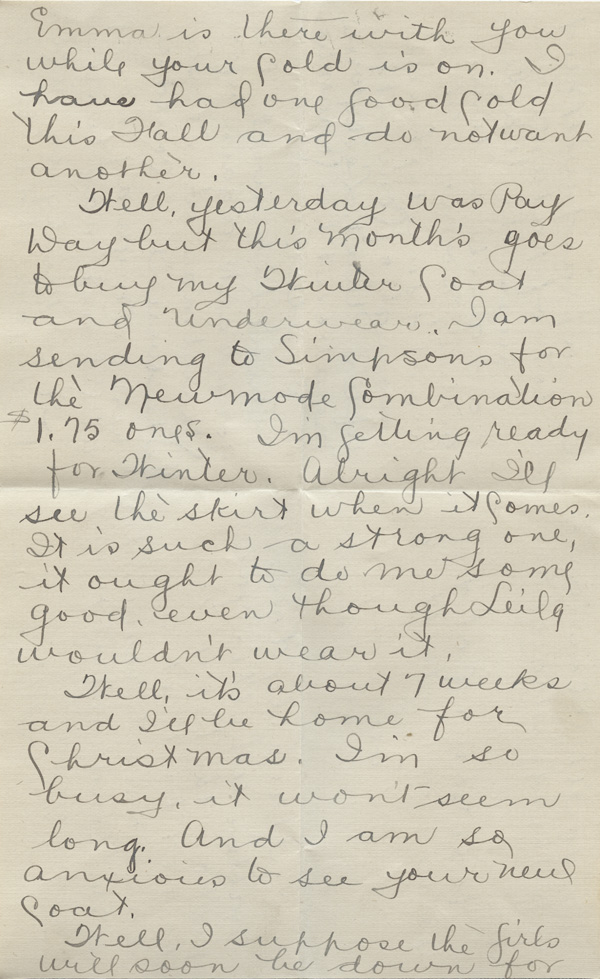 Emma is there with you
while your Cold is on. I
have had one good Cold
this Fall and do not want
another.
Well, yesterday was Pay
Day but this month's goes
to buy my Winter Coat
and Underwear. I am
sending to Simpsons for
the Newmode Combination
$1.75 ones. I'm getting ready
for Winter. Alright I'll
see the skirt when it Comes.
It is such a strong one,
it ought to do me some
good, even though Leila
wouldn't wear it.
Well, it's about 7 weeks
and I'll be home for
Christmas. I'm so
busy, it won't seem
long. And I am so
anxious to see your new
Coat.
Well, I suppose the girls
will soon be down for